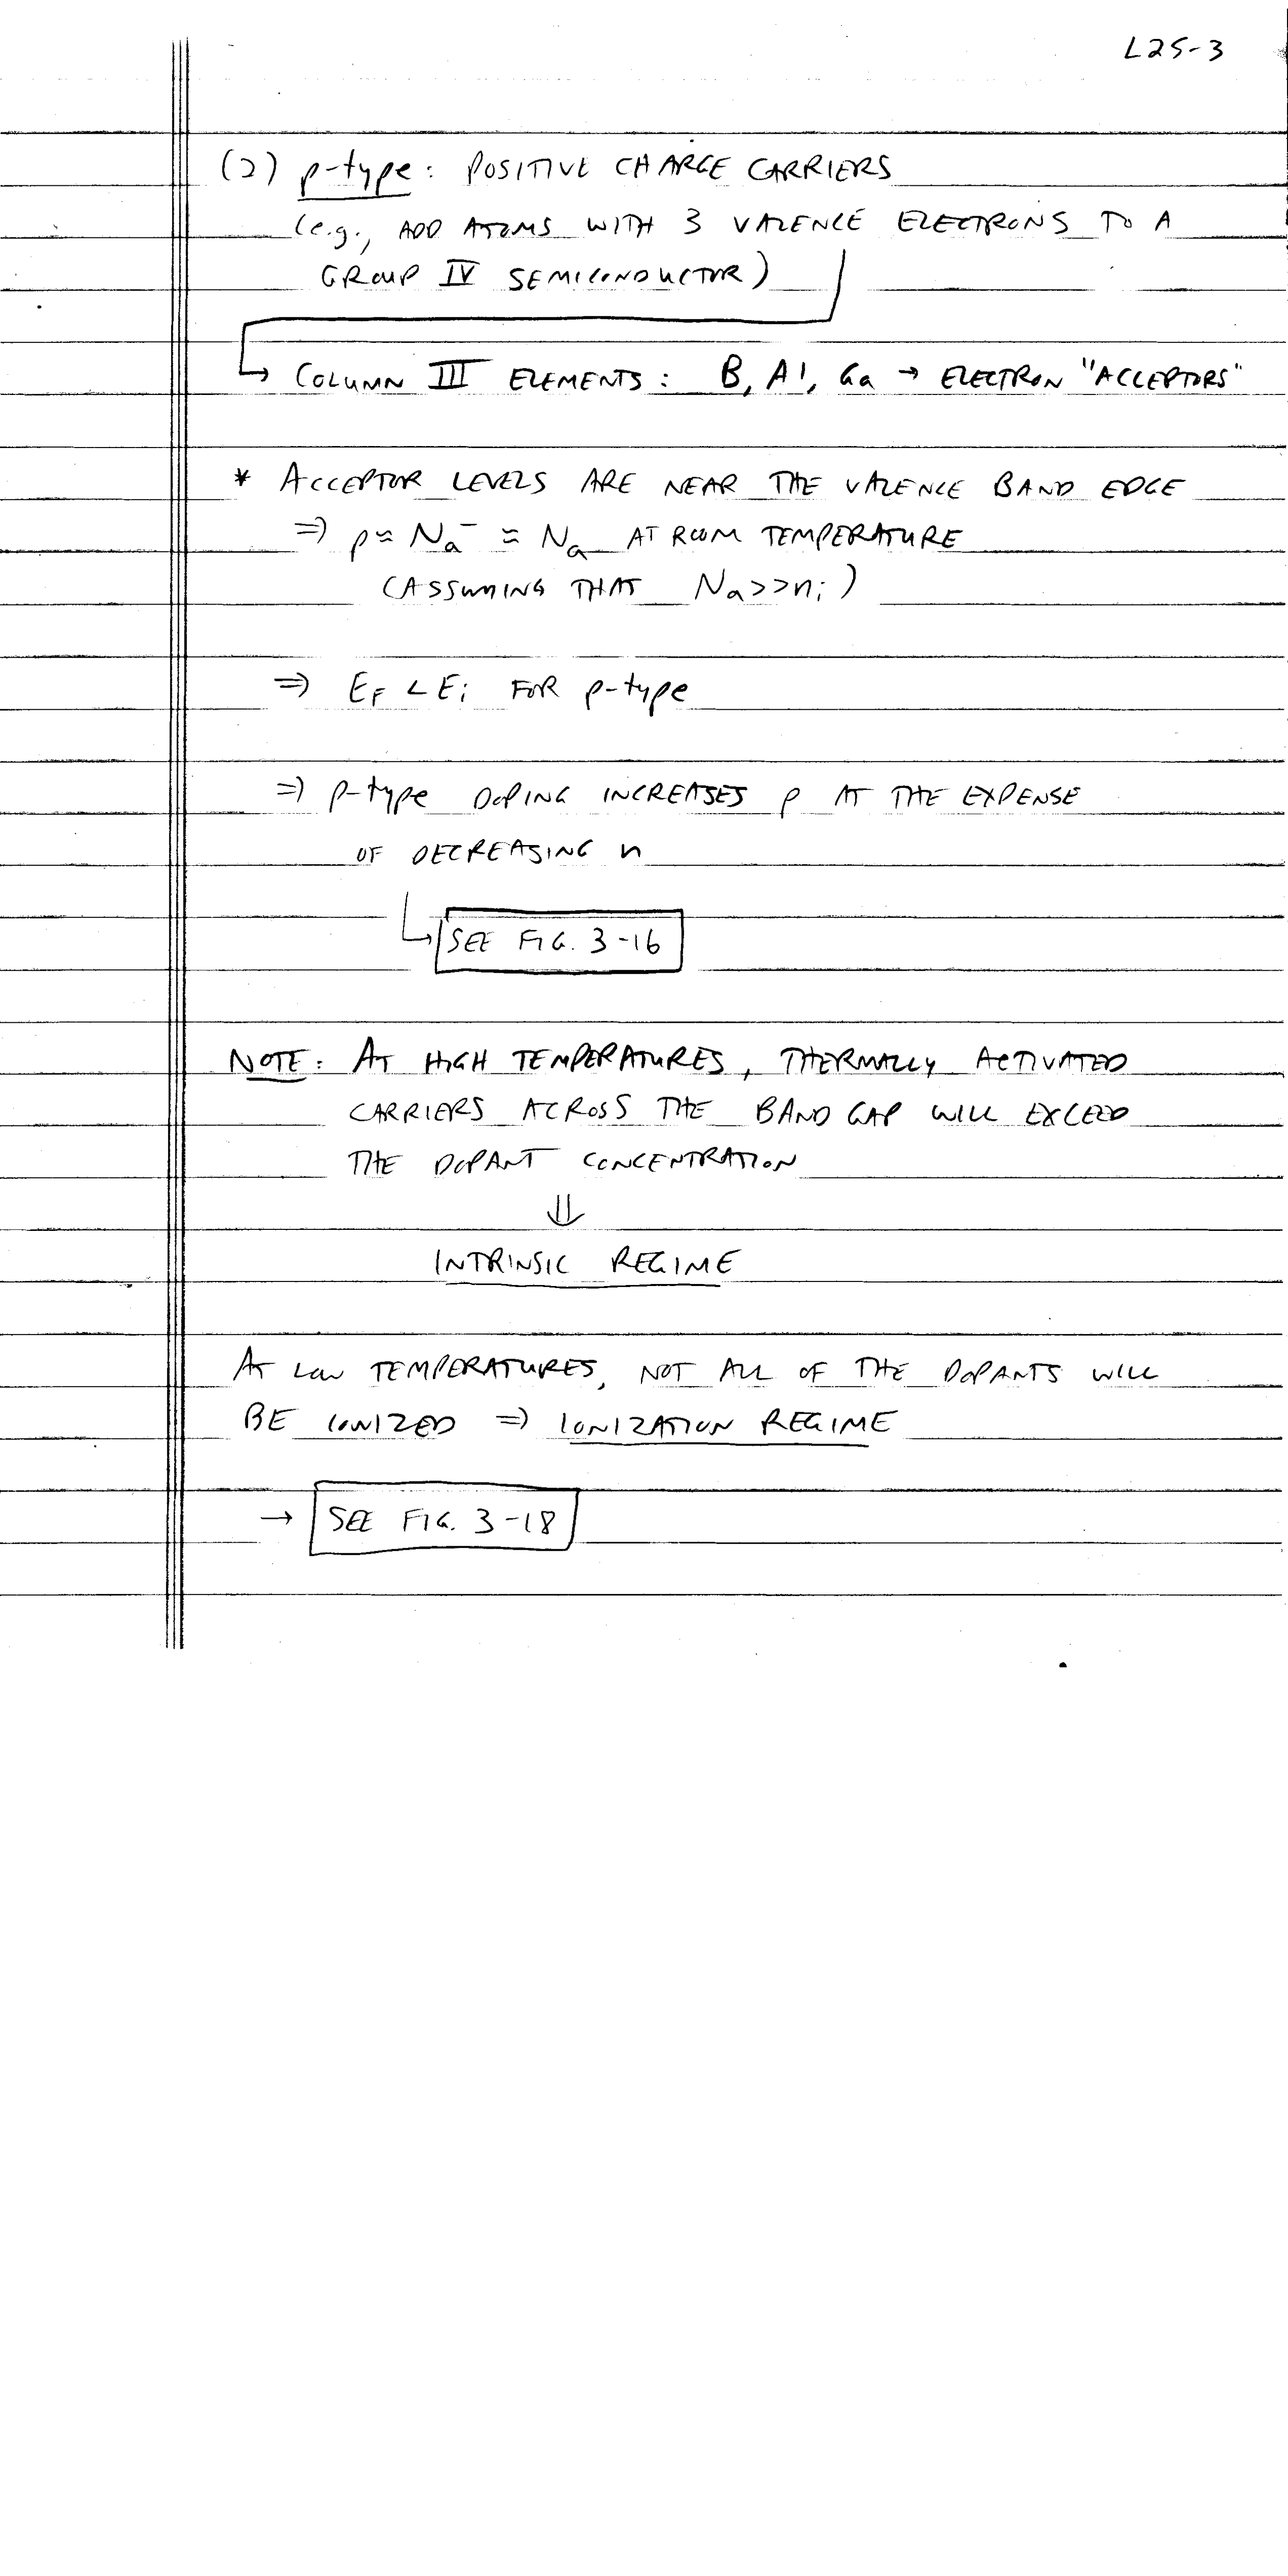 L25-3
(2) p-type: POSITIVE CHARGE CARRIERS
(e.g., ADD ATOMS WITH 3 VALENCE ELECTRONS TO A
GROUP IV SEMICONDUCTOR)
↳ COLUMN III ELEMENTS: B, Al, Ga → ELECTRON "ACCEPTORS"
* ACCEPTOR LEVELS ARE NEAR THE VALENCE BAND EDGE
⇒ p ≈ Na⁻ ≈ Na AT ROOM TEMPERATURE
(ASSUMING THAT Na>>ni)
⇒ EF < Ei FOR p-type
⇒ p-type DOPING INCREASES p AT THE EXPENSE
OF DECREASING n
↳ SEE FIG. 3-16
NOTE: AT HIGH TEMPERATURES, THERMALLY ACTIVATED
CARRIERS ACROSS THE BAND GAP WILL EXCEED
THE DOPANT CONCENTRATION
⇓
INTRINSIC REGIME
AT LOW TEMPERATURES, NOT ALL OF THE DOPANTS WILL
BE IONIZED ⇒ IONIZATION REGIME
→ SEE FIG. 3-18